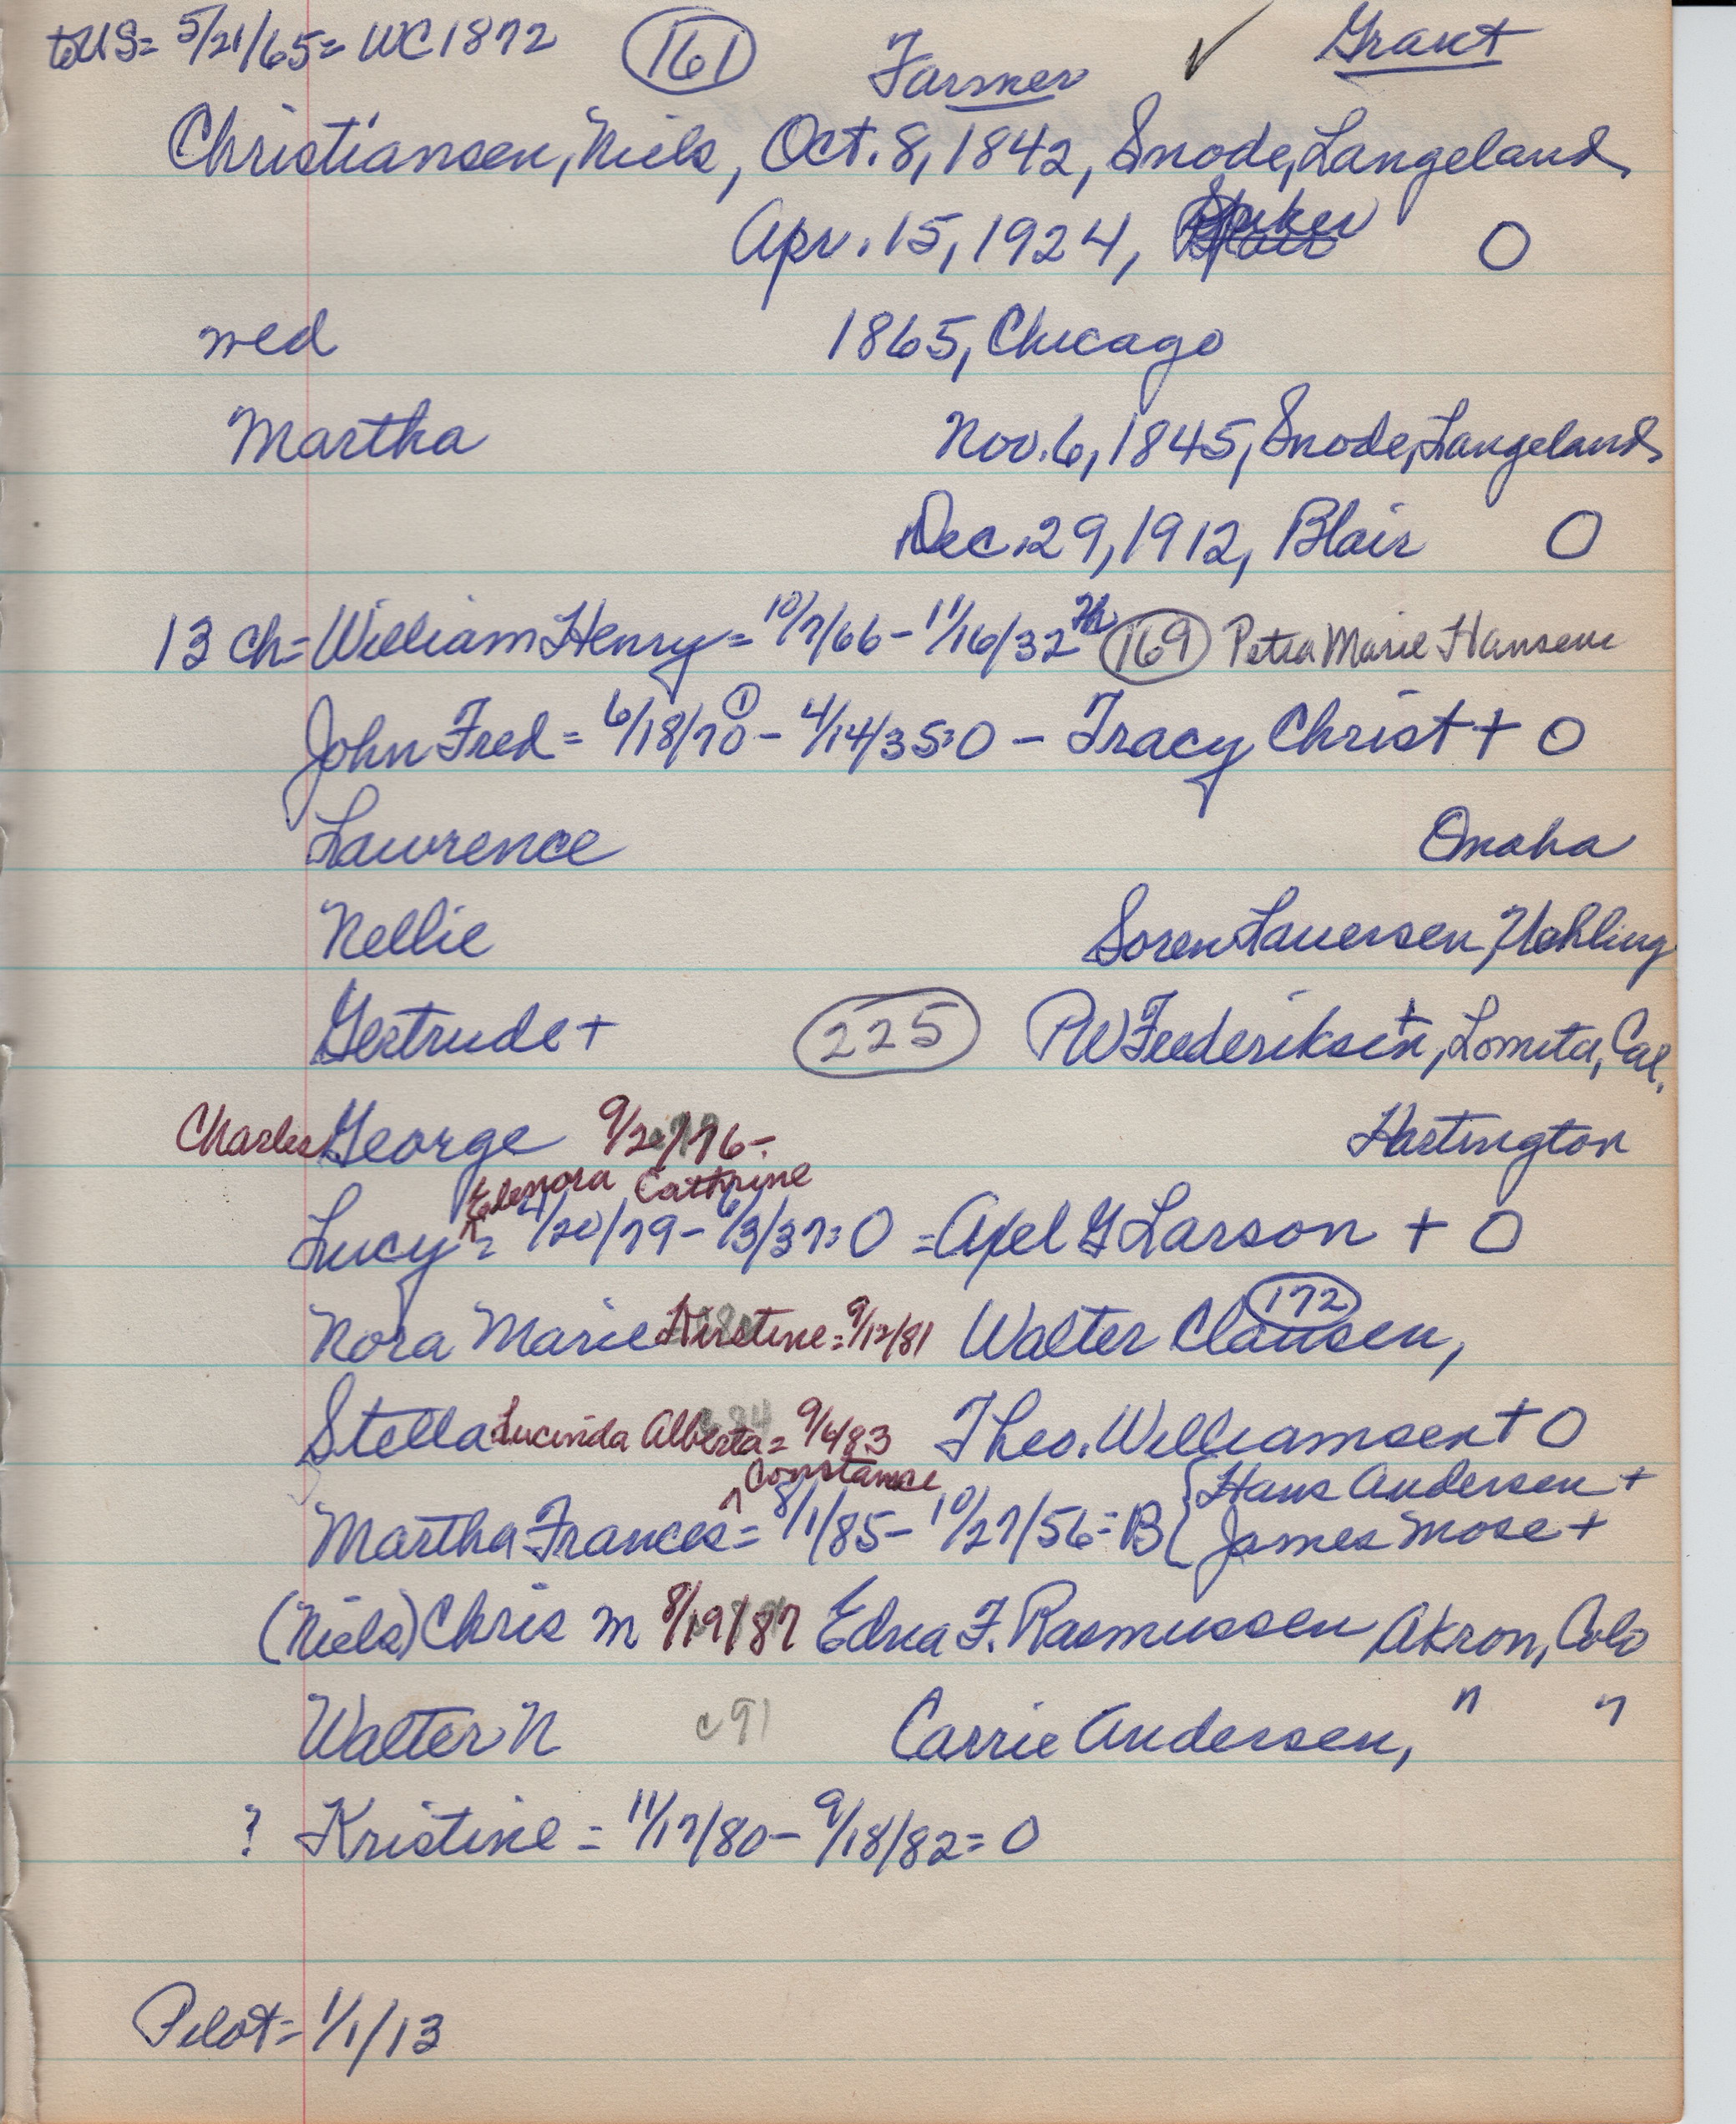 toUS= 5/21/65= WC1872 161 Farmer ✓ Grant
Christiansen, Niels, Oct. 8, 1842, Snode, Langeland
Apr. 15, 1924, O
wed 1865, Chicago
Martha Nov. 6, 1845, Snode, Langeland
Dec. 29, 1912, Blair O
13 ch= William Henry= 10/7/66 - 11/16/32 169 Petra Marie Hansen
John Fred = 6/18/70 ① - 4/14/35=O - Tracy Christ + O
Lawrence Omaha
Nellie Soren Lauersen, Uehling
Gertrude + 225 PW Frederiksen +, Lomita, Cal.
Charles George 9/2/76 - Hartington
Elenora Cathrine
Lucy = 4/20/79 - 6/3/37=O = Axel G Larson + O
Nora Marie Kirstine = 9/12/81 Walter Clausen, 172
Stella Lucinda Alberta = 9/4/83 Theo. Williamsen + O
Constance Hans Andersen +
Martha Frances = 8/1/85 - 10/27/56 = B James Mose +
(Niels) Chris M 8/19/87 Edna F. Rasmussen Akron, Colo
Walter N c91 Carrie Andersen, " "
? Kristine = 11/17/80 - 9/18/82 = O
Pilot = 1/1/13